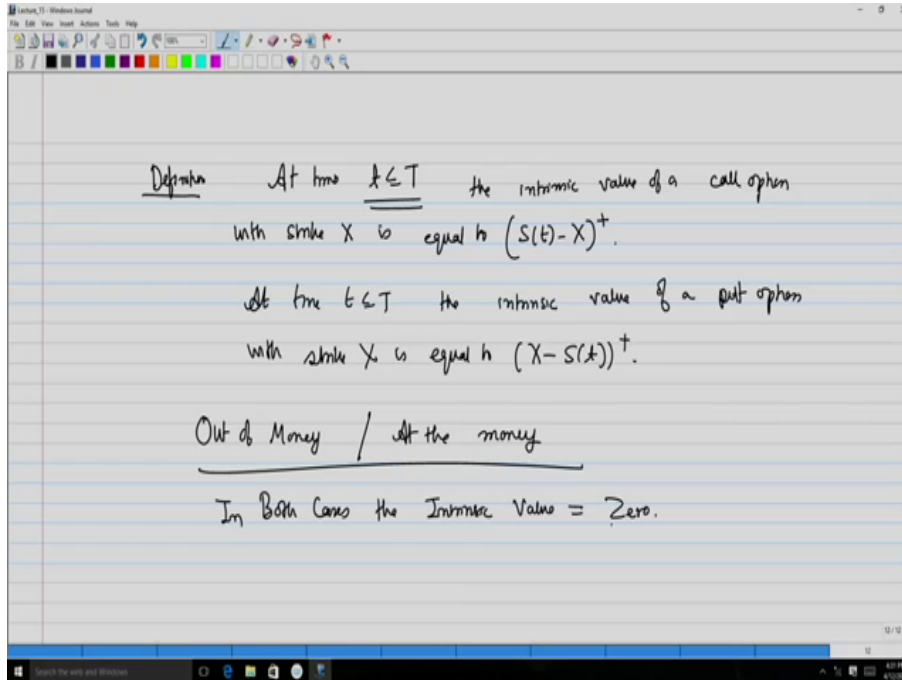 Lecture_15 - Windows Journal
File Edit View Insert Actions Tools Help
B I
Definition At time t ≤ T the intrinsic value of a call option
with strike X is equal to (S(t) - X)⁺.
At time t ≤ T the intrinsic value of a put option
with strike X is equal to (X - S(t))⁺.
Out of Money / At the money
In Both Cases the Intrinsic Value = Zero.
12 / 12
12
Search the web and Windows